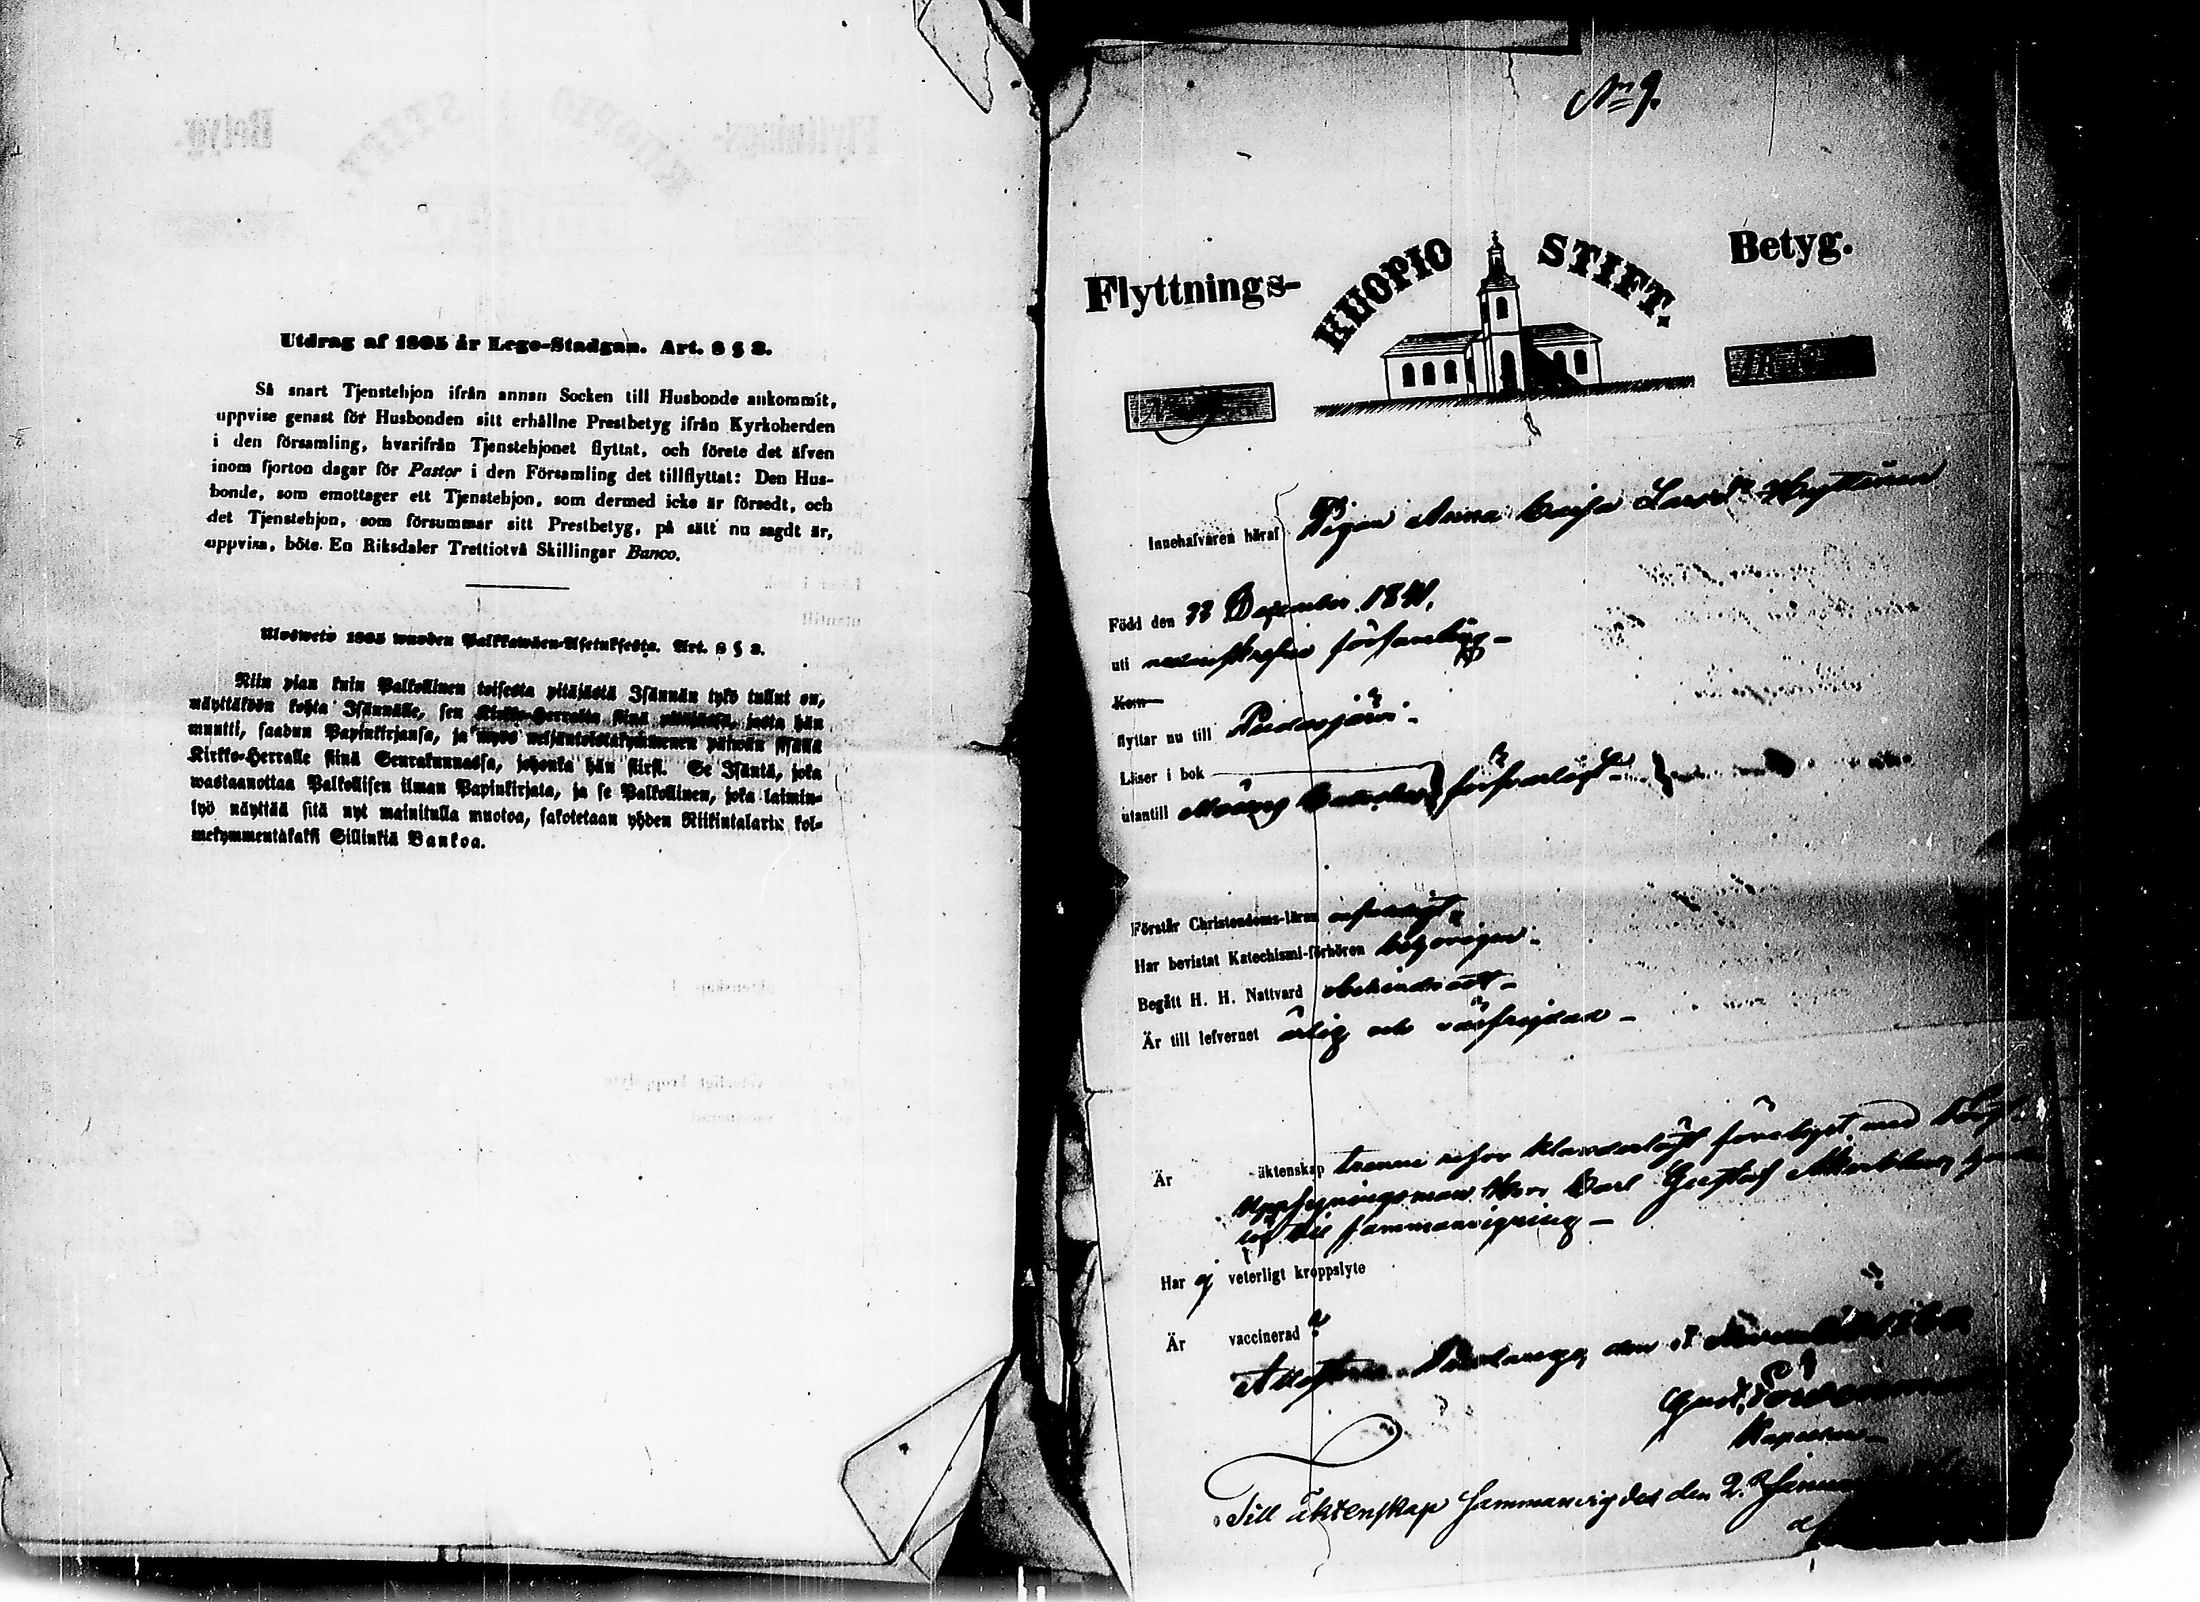 Utdrag af 1805 år Lego-Stadgan. Art. 8 § 8.
Så snart Tjenstehjon ifrån annan Socken till Husbonde ankommit,
uppvise genast för Husbonden sitt erhållne Prestbetyg ifrån Kyrkoherden
i den församling, hvarifrån Tjenstehjonet flyttat, och förete det äfven
inom fjorton dagar för Pastor i den Församling det tillflyttat: Den Hus-
bonde, som emottager ett Tjenstehjon, som dermed icke är försedt, och
det Tjenstehjon, som försummar sitt Prestbetyg, på sätt nu sagdt är,
uppvisa, böte En Riksdaler Trettiotvå Skillingar Banco.
Ulosweto 1805 wuoden Palkkawäen-Asetuksesta. Art. 8 § 8.
Niin pian kuin Palkollinen toisesta pitäjästä Isännän tykö tullut on,
näyttäköön kohta Isännälle, sen Kirkko-Herralta siinä pitäjässä, josta hän
muutti, saadun Papinkirjansa, ja myös neljäntoistakymmenen päiwän sisällä
Kirkko-Herralle siinä Seurakunnassa, johonka hän siirsi. Se Isäntä, joka
wastaanottaa Palkollisen ilman Papinkirjata, ja se Palkollinen, joka laimin-
lyö näyttää sitä nyt mainitulla muotoa, sakotetaan yhden Riikintalarin kol-
mekymmentäkaksi Sillinkiä Bankoa.
No 9.
Flyttnings- KUOPIO STIFT. Betyg.
Innehafvaren häraf Pigan Anna Caisa Larsdr
Född den 22 December 1841.
uti församling
flyttar nu till Pudasjärvi.
Läser i bok
utantill försvarligt
Förstår Christendoms-läran försvarligt
Har bevistat Katechismi-förhören
Begått H. H. Nattvard obehindradt
Är till lefvernet ärlig och välfrejdad
Är äktenskap trenne resor klanderlöst förelyst med
Uppsyningsman Carl Gustaf
till sammanvigning
Har ej veterligt kroppslyte
Är vaccinerad
den
Gust.
Kapellan
Till äktenskap Sammanvigdes den 2.